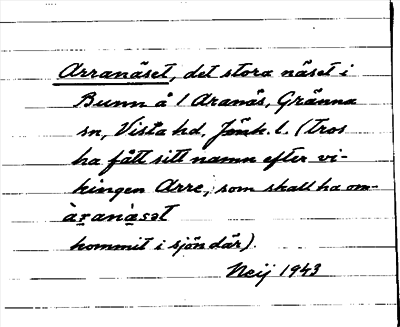 Arranäset, det stora näset i
Bunn å / Aranäs, Gränna
sn, Vista hd, Jönk. l. (tros
ha fått sitt namn efter vi-
kingen Arre, som skall ha om-
àranàsət
kommit i sjön där).
Neij 1943